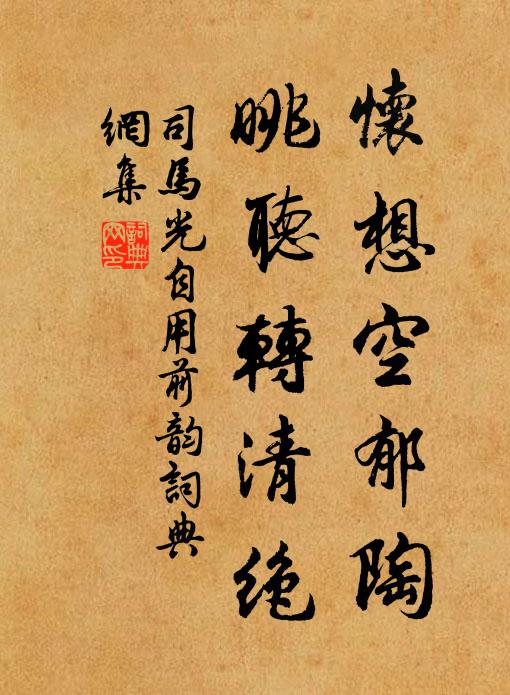 懷想空郁陶
眺聽轉清絕
司馬光自用前韵詞典
網集
詞典
网印